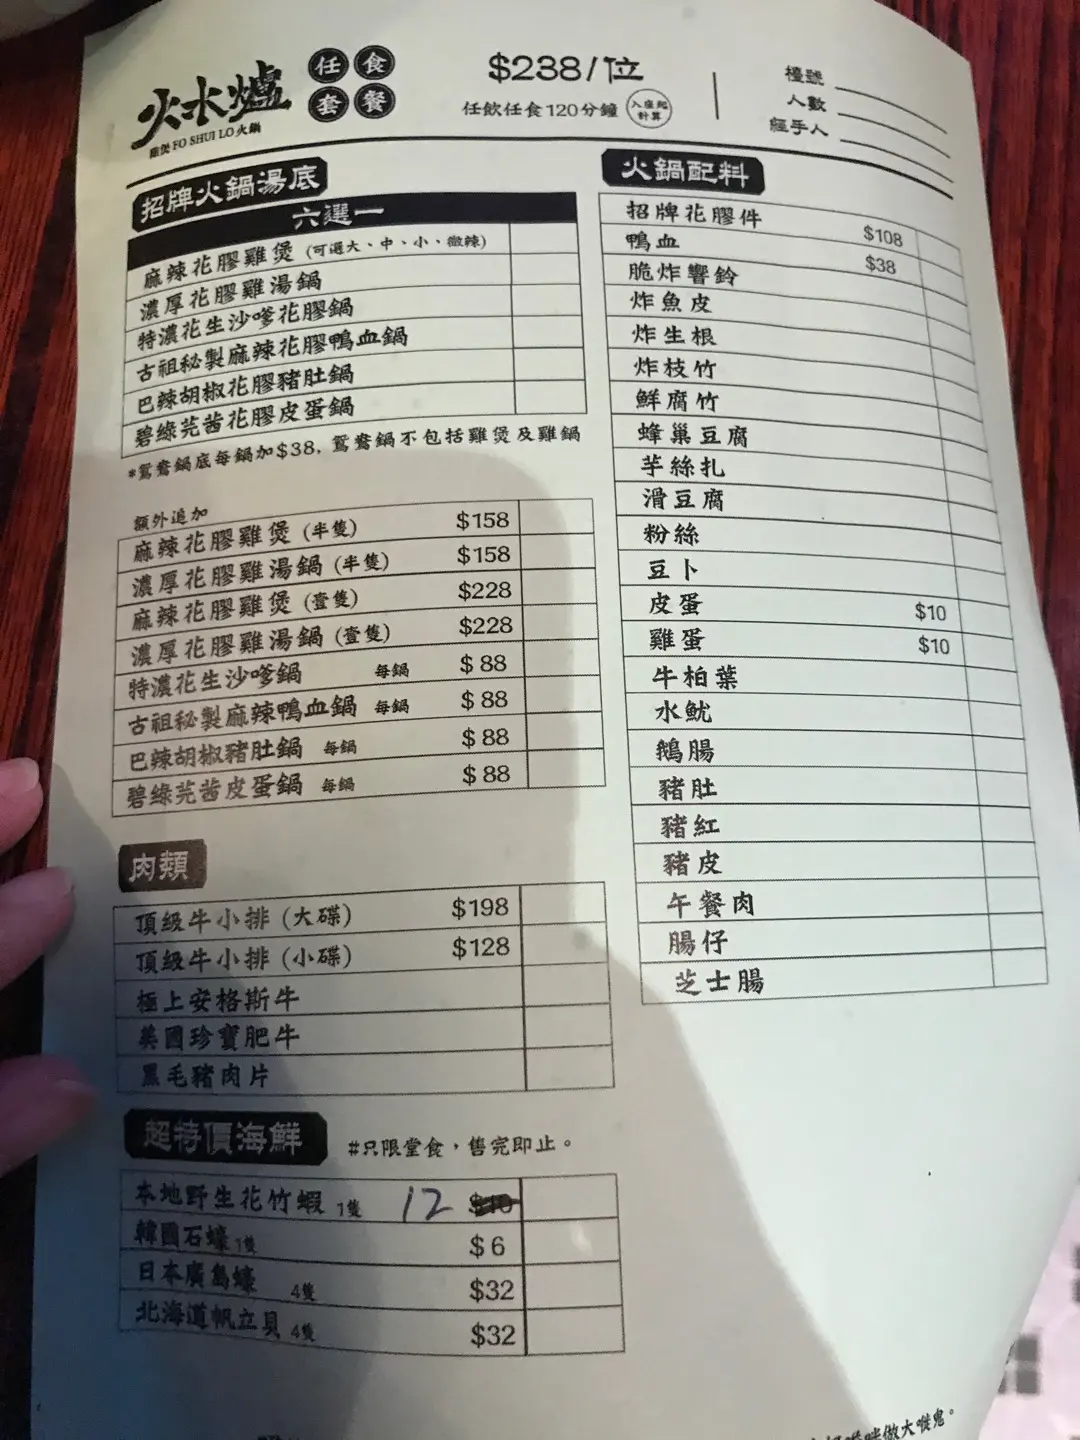 火水爐
雞煲 FO SHUI LO 火鍋
任食
套餐
$238/位
任飲任食120分鐘 入座起計算
檯號
人數
經手人
招牌火鍋湯底
六選一
麻辣花膠雞煲 (可選大、中、小、微辣)
濃厚花膠雞湯鍋
特濃花生沙嗲花膠鍋
古祖秘製麻辣花膠鴨血鍋
巴辣胡椒花膠豬肚鍋
碧綠芫茜花膠皮蛋鍋
*鴛鴦鍋底每鍋加$38, 鴛鴦鍋不包括雞煲及雞鍋
額外追加
麻辣花膠雞煲 (半隻) $158
濃厚花膠雞湯鍋 (半隻) $158
麻辣花膠雞煲 (壹隻) $228
濃厚花膠雞湯鍋 (壹隻) $228
特濃花生沙嗲鍋 每鍋 $88
古祖秘製麻辣鴨血鍋 每鍋 $88
巴辣胡椒豬肚鍋 每鍋 $88
碧綠芫茜皮蛋鍋 每鍋 $88
肉類
頂級牛小排 (大碟) $198
頂級牛小排 (小碟) $128
極上安格斯牛
美國珍寶肥牛
黑毛豬肉片
超特價海鮮 #只限堂食，售完即止。
本地野生花竹蝦 1隻 12 $10
韓國石蠔 1隻 $6
日本廣島蠔 4隻 $32
北海道帆立貝 4隻 $32
火鍋配料
招牌花膠件 $108
鴨血 $38
脆炸響鈴
炸魚皮
炸生根
炸枝竹
鮮腐竹
蜂巢豆腐
芋絲扎
滑豆腐
粉絲
豆卜
皮蛋 $10
雞蛋 $10
牛柏葉
水魷
鵝腸
豬肚
豬紅
豬皮
午餐肉
腸仔
芝士腸
做大喉鬼。